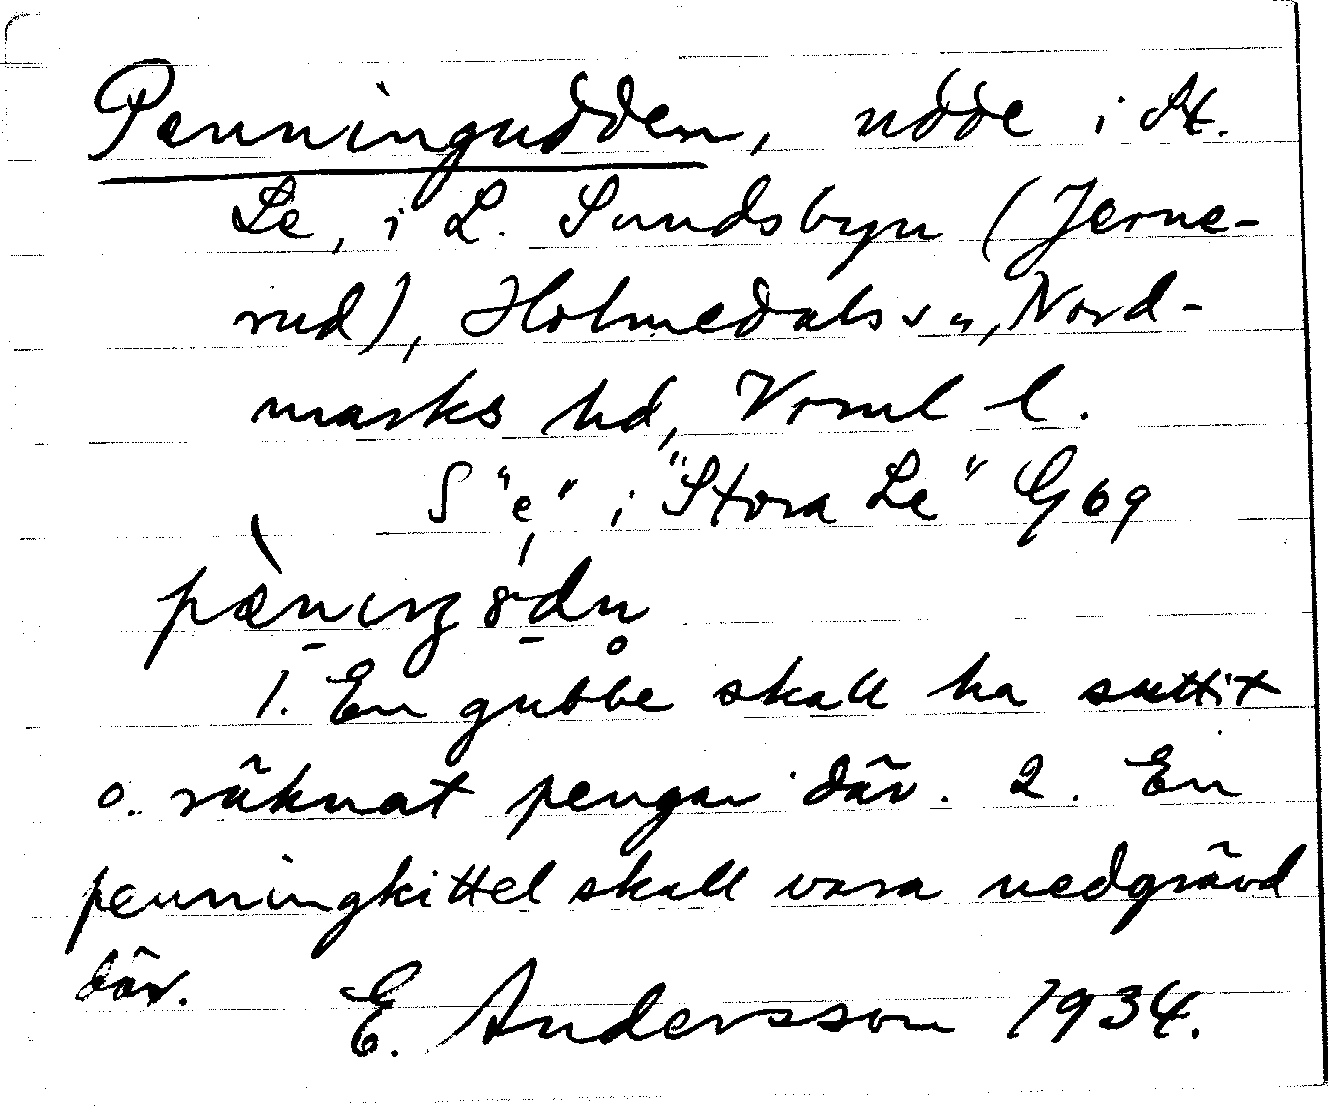 Penningudden, udde i St.
Le, i L. Sundsbyn (Jerne-
rud), Holmedals sn, Nord-
marks hd, Vrml l.
S "e" i "Stora Le" G 69
1. En gubbe skall ha suttit
o. räknat pengar där. 2. En
penningkittel skall vara nedgrävd
där. E. Andersson 1934.